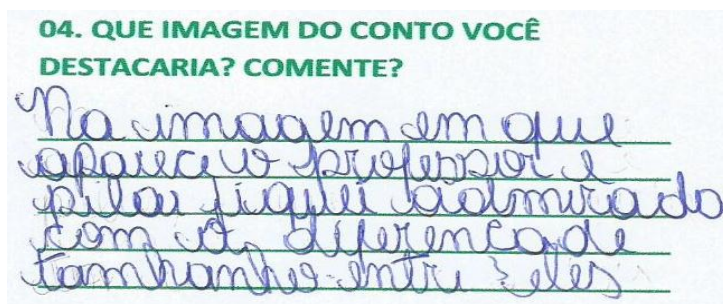 04. QUE IMAGEM DO CONTO VOCÊ
DESTACARIA? COMENTE?
Na imagem em que
aparece o professor e
pilar fiquei admirado
com a diferença de
tamhanho entre eles